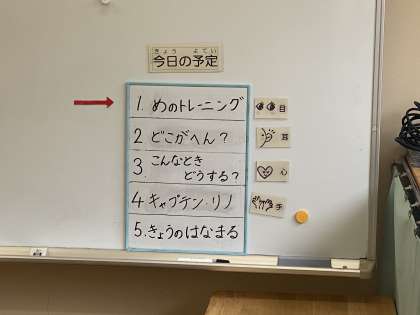 きょう よてい
今日の予定
1. めのトレーニング
目
2 どこがへん？
耳
3. こんなとき
どうする？
心
4 キャプテン・リノ
手
5. きょうのはなまる